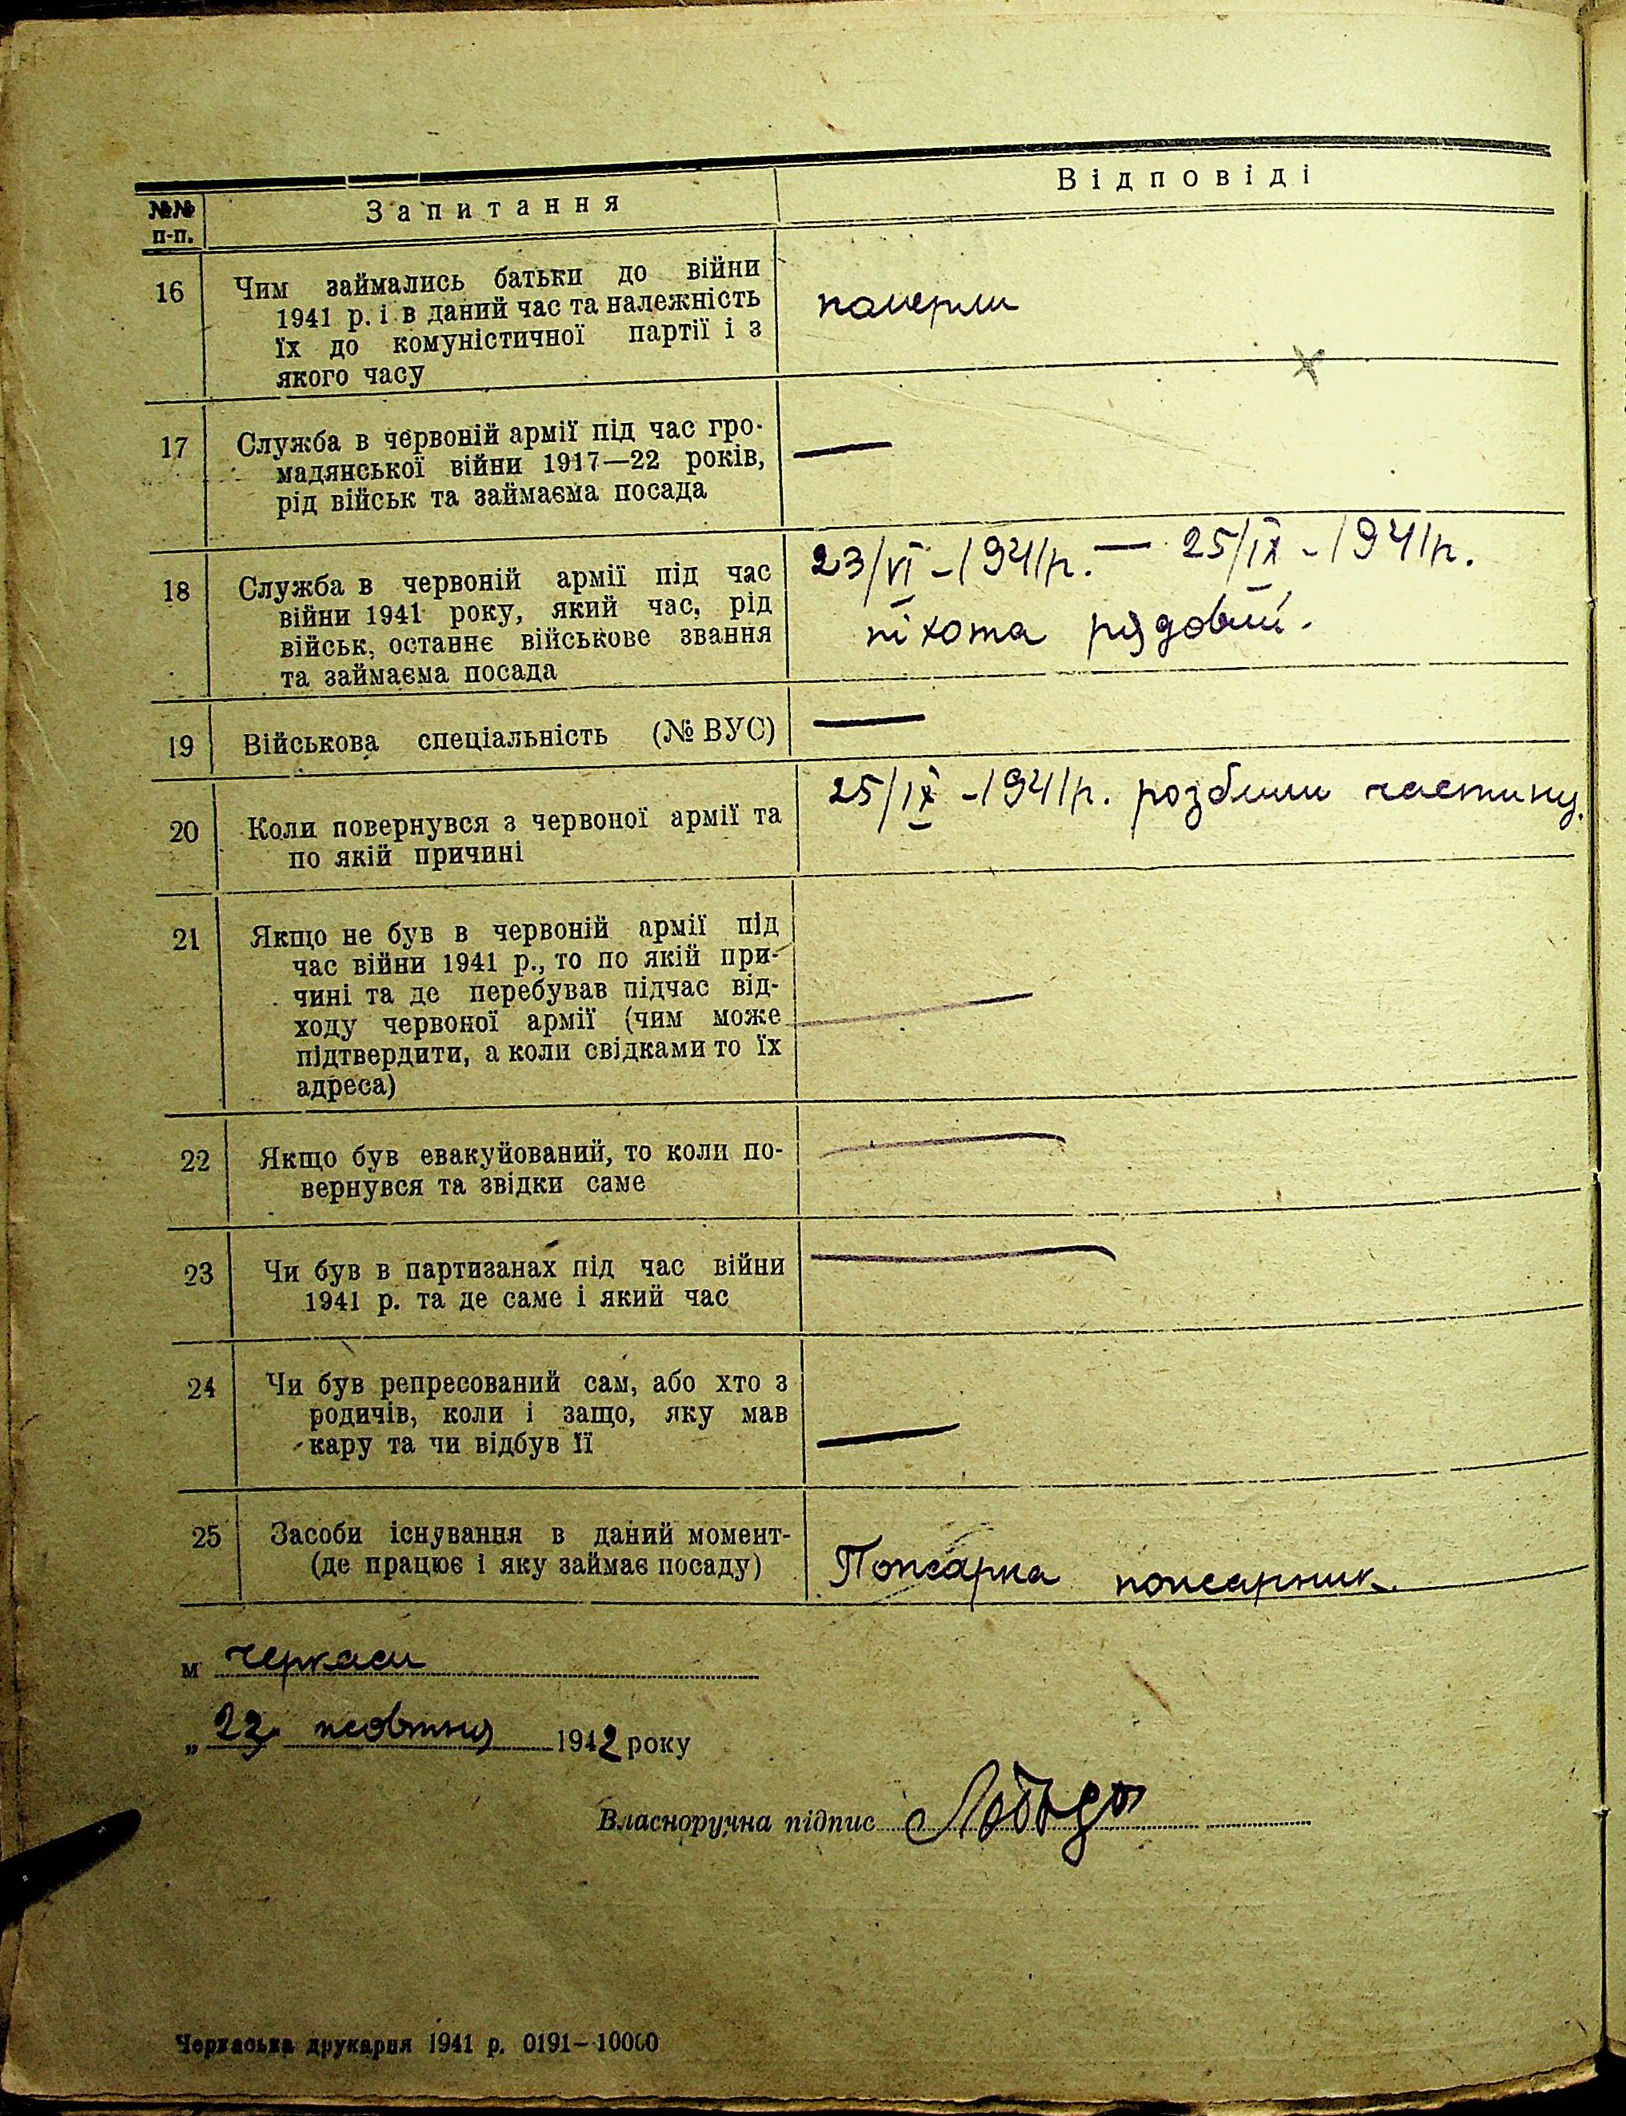 №№ п-п.
Запитання
Відповіді
16
Чим займались батьки до війни
1941 р. і в даний час та належність
їх до комуністичної партії і з
якого часу
померли
17
Служба в червоній армії під час гро-
мадянської війни 1917—22 років,
рід військ та займаєма посада
—
18
Служба в червоній армії під час
війни 1941 року, який час, рід
військ, останнє військове звання
та займаєма посада
23/VI - 1941р. — 25/IX - 1941р.
піхота рядовий.
19
Військова спеціальність (№ ВУС)
—
20
Коли повернувся з червоної армії та
по якій причині
25/IX - 1941р. розбили частину.
21
Якщо не був в червоній армії під
час війни 1941 р., то по якій при-
чині та де перебував підчас від-
ходу червоної армії (чим може
підтвердити, а коли свідками то їх
адреса)
—
22
Якщо був евакуйований, то коли по-
вернувся та звідки саме
—
23
Чи був в партизанах під час війни
1941 р. та де саме і який час
—
24
Чи був репресований сам, або хто з
родичів, коли і защо, яку мав
кару та чи відбув її
—
25
Засоби існування в даний момент-
(де працює і яку займає посаду)
Пожарка пожарник.
м Черкаси
„ жовтня 1942 року
Власноручна підпис Лобода
Черкаська друкарня 1941 р. 0191—10000